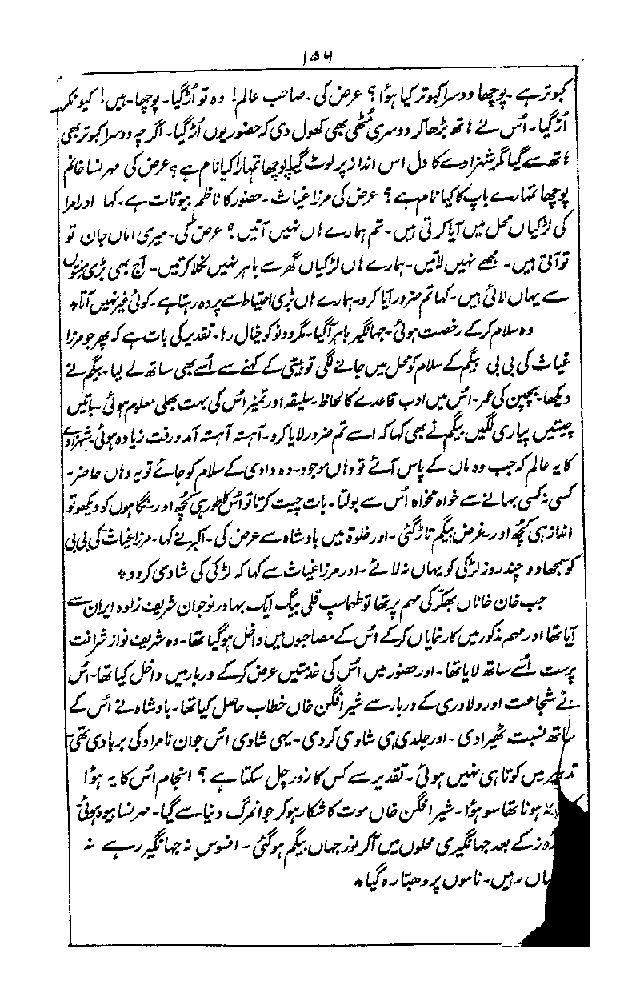 ۱۵۶
کبوتر ہے ۔ پوچھا دوسرا کبوتر کیا ہوا ؟ عرض کی ۔ صاحب عالم! وہ تو اُڑ گیا ۔ پوچھا ۔ ہیں! کیونکر
اُڑ گیا ۔ اُس نے ہاتھ بڑھا کر دوسری مٹھی بھی کھول دی کہ حضور یوں اُڑ گیا ۔ اگرچہ دوسرا کبوتر بھی
ہاتھ سے گیا مگر شہزادے کا دل اس انداز پر لوٹ گیا پوچھا تمہارا کیا نام ہے ؟ عرض کی مہرنسا خانم
پوچھا تمہارے باپ کا کیا نام ہے ؟ عرض کی مرزا غیاث ۔ حضور کا ناظم بیوتات ہے ۔ کہا اور امرا
کی لڑکیاں محل میں آیا کرتی ہیں ۔ تم ہمارے ہاں نہیں آتیں ؟ عرض کی ۔ میری اماں جان تو
آتی ہیں ۔ مجھے نہیں لاتیں ۔ ہمارے ہاں لڑکیاں گھر سے باہر نہیں نکلا کرتیں ۔ آج بھی بڑی منتوں
سے یہاں لائی ہیں ۔ کہا تم ضرور آیا کرو ۔ ہمارے ہاں بڑی احتیاط سے پردہ رہتا ہے ۔ کوئی غیر نہیں آتا ٭
وہ سلام کر کے رخصت ہوئی ۔ جہانگیر باہر آگیا ۔ مگر دونو کو خیال رہا ۔ تقدیر کی بات ہے کہ پھر جو مرزا
غیاث کی بی بی بیگم کے سلام کو محل میں جانے لگی تو بیٹی کے کہنے سے اُسے بھی ساتھ لے لیا ۔ بیگم نے
دیکھا ۔ بچپن کی عمر ۔ اُس میں ادب قاعدے کا لحاظ سلیقہ اور تمیز اُس کی بہت بھلی معلوم ہوئی ۔ باتیں
چیتیں پیاری لگیں بیگم نے بھی کہا کہ اسے تم ضرور لایا کرو ۔ آہستہ آہستہ آمد و رفت زیادہ ہوئی ۔ شہزادے
کا یہ عالم کہ جب وہ ماں کے پاس آئے تو وہاں موجود ۔ وہ دادی کے سلام کو جائے تو یہ وہاں حاضر ۔
کسی نہ کسی بہانے سے خواہ مخواہ اُس سے بولتا ۔ بات چیت کرتا تو اُس کا طور ہی کچھ اور ۔ نگاہوں کو دیکھو تو
انداز ہی کچھ اور ۔ غرض بیگم تاڑ گئی ۔ اور خلوۃ میں بادشاہ سے عرض کی ۔ اکبر نے کہا ۔ مرزا غیاث کی بی بی
کو سمجھا دو چند روز لڑکی کو یہاں نہ لائے ۔ اور مرزا غیاث سے کہا کہ لڑکی کی شادی کر دو ٭
جب خان خاناں بھکر کی مہم پر تھا تو طہاسپ قلی بیگ ایک بہادر نوجوان شریف زادہ ایران سے
آیا تھا اور مہم مذکور میں کارِ نمایاں کر کے اُس کے مصاحبوں میں داخل ہوگیا تھا ۔ وہ شریف نواز شرافت
پرست اُسے ساتھ لایا تھا ۔ اور حضور میں اُس کی خدمتیں عرض کر کے دربار میں داخل کیا تھا ۔ اُس
نے شجاعت اور دلاوری کے دربار سے شیر افگن خاں خطاب حاصل کیا تھا ۔ بادشاہ نے اُس کے
ساتھ نسبت ٹھیرا دی ۔ اور جلدی ہی شادی کر دی ۔ یہی شادی اُس جوان نامراد کی بربادی تھی
تدبیر میں کوتاہی نہیں ہوئی ۔ تقدیر سے کس کا زور چل سکتا ہے ؟ انجام اُس کا یہ ہوا
ہونا تھا سو ہوا ۔ شیر افگن خاں موت کا شکار ہو کر جوانمرگ دنیا سے گیا ۔ مہرنسا بیوہ ہوئی
روز کے بعد جہانگیری محلوں میں آکر نور جہاں بیگم ہوگئی ۔ افسوس نہ جہانگیر رہے نہ
رہیں ۔ ناموں پر دھبا رہ گیا ٭